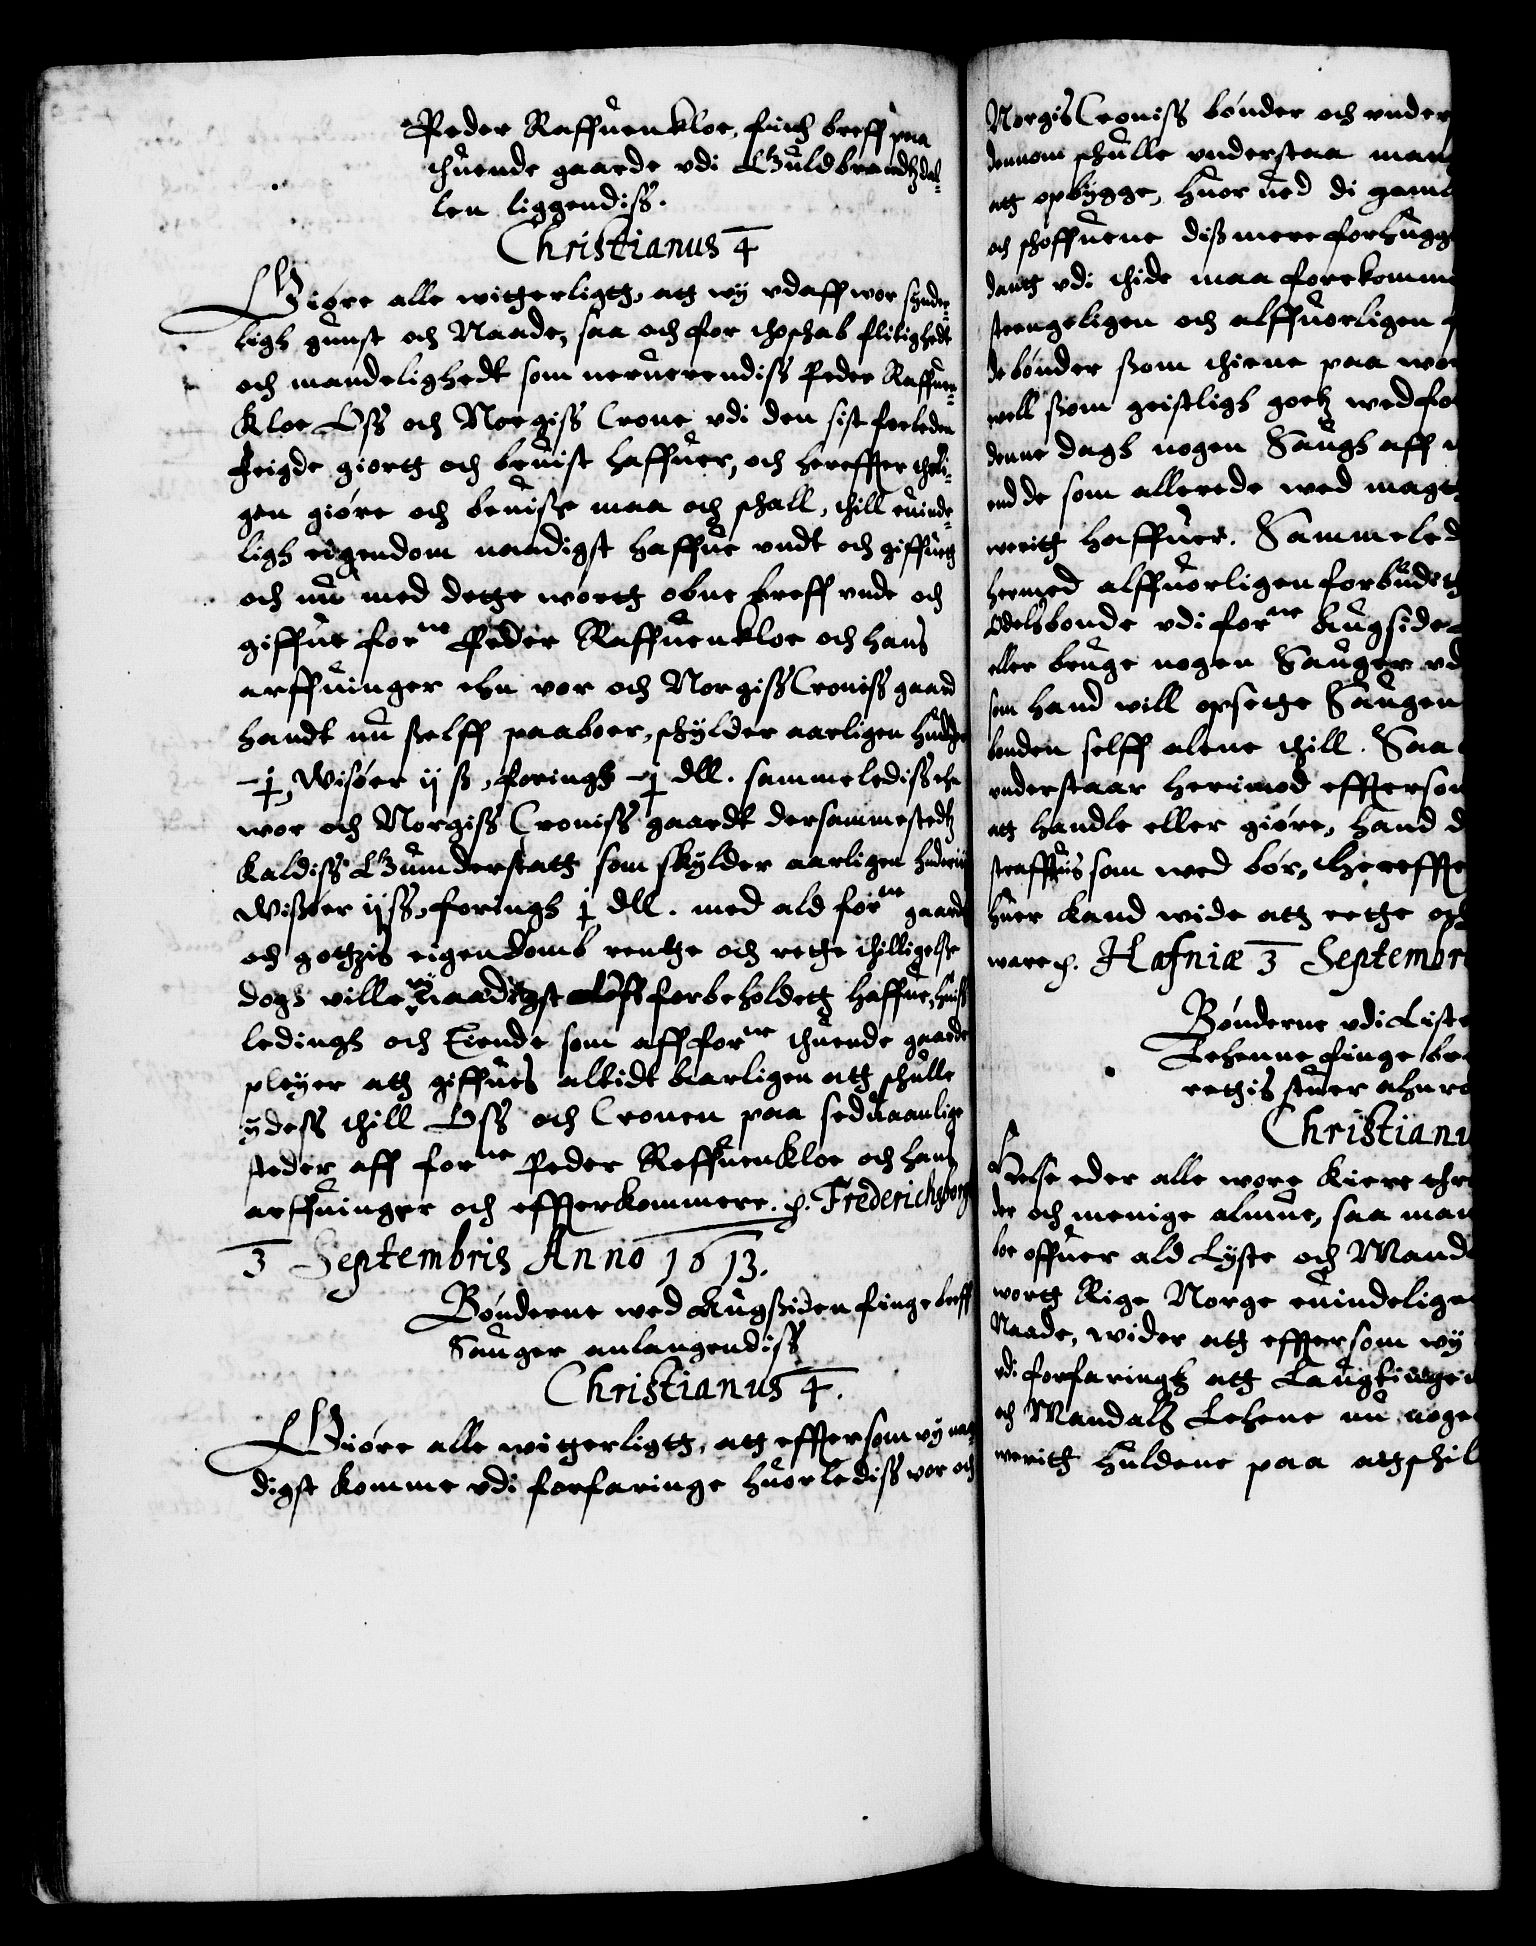 Peder Raffuenkloe, fich breff paa
thuende gaarde vdi Guldbrandtzdal-
len liggendiss.
Christianus 4
Giøre alle witterligtt, att wy vdaff wor synder-
ligh gunst och Naade, saa och for throschab flitighedt
och mandelighedt som neruerendiss Peder Raffuen-
kloe Oss och Norgiss Crone vdi den sist forleden
Feigde giortt och beuist haffuer, och hereffter throli-
gen giøre och beuisse maa och schall, thill euinde-
ligh eigendom naadigst haffue vndt och giffuett
och nu med dette wortt obne breff vnde och
giffue forne Peder Raffuenkloe och hans
arffuinger ehn vor och Norgiss Croniss gaard
handt nu sselff paaboer, schylder aarligen
Wisøer ij ß, foringh dll. sammelediss ehn
wor och Norgiss Croniss gaardt dersammestedtz
kaldiss Gumderstatt som skylder aarligen
Wisøer ij ß, foringh j dll. med ald forne gaarde
och gotzis eigendomb rentte och rette thilligelse
dogh ville wy naadigst Oss forbeholdett haffue, huiss
ledingh och Tiende som aff forne thuende gaarde
pleyer att giffues altidt klarligen att schulle
ydess thill Oss och Cronen paa seduaanlige
steder aff forne Peder Reffuenkloe och hans
arffuinger och effterkommere. p. Frederichsborg
3 Septembris Anno 1613.
Bønderne wed Augssiden finge breff
Sauger anlangendiss
Christianus 4.
Giøre alle witterligtt, att efftersom wy naa-
digst komme vdi forfaringe huorlediss vor och
Norgis Croniss bønder och vnder
dennom schulle vnderstaa man
att opbygge, huor ued di gaml
och schoffuene diss mere forhugg
dantt vdi thide maa forekomme
strengeligen och alffuorligen f
de bønder ssom thiene paa wor
well ssom geistligh gotz wed fo
denne dagh nogen Saugh aff n
end de som allerede wed magt
weritt haffuer. Sammeled
hermed alffuorligen forbudett
Odelsbonde vdi forne Augside
eller bruge nogen Sauger vd
som hand will opsette Saugen
bonden selff alene thill. Saa
vnderstaar herimod efftersom
att handle eller giøre, hand d
straffuis som ued bør, Thereffter
huer kand wide att rette och
ware p. Hafniæ 3 Septembr
Bønderne vdi Liste
Lehenne finge bre
rettis stuer ahnro
Christianu
Helse eder alle wore kiere thro
der och menige almue, saa man
boe offuer ald Lyste och Mand
wortt Rige Norge euindelige
Naade, wider att efftersom wy
vdi forfaringh att Laugtinge
och Mandals Lehene nu noge
weritt huldene paa att schil